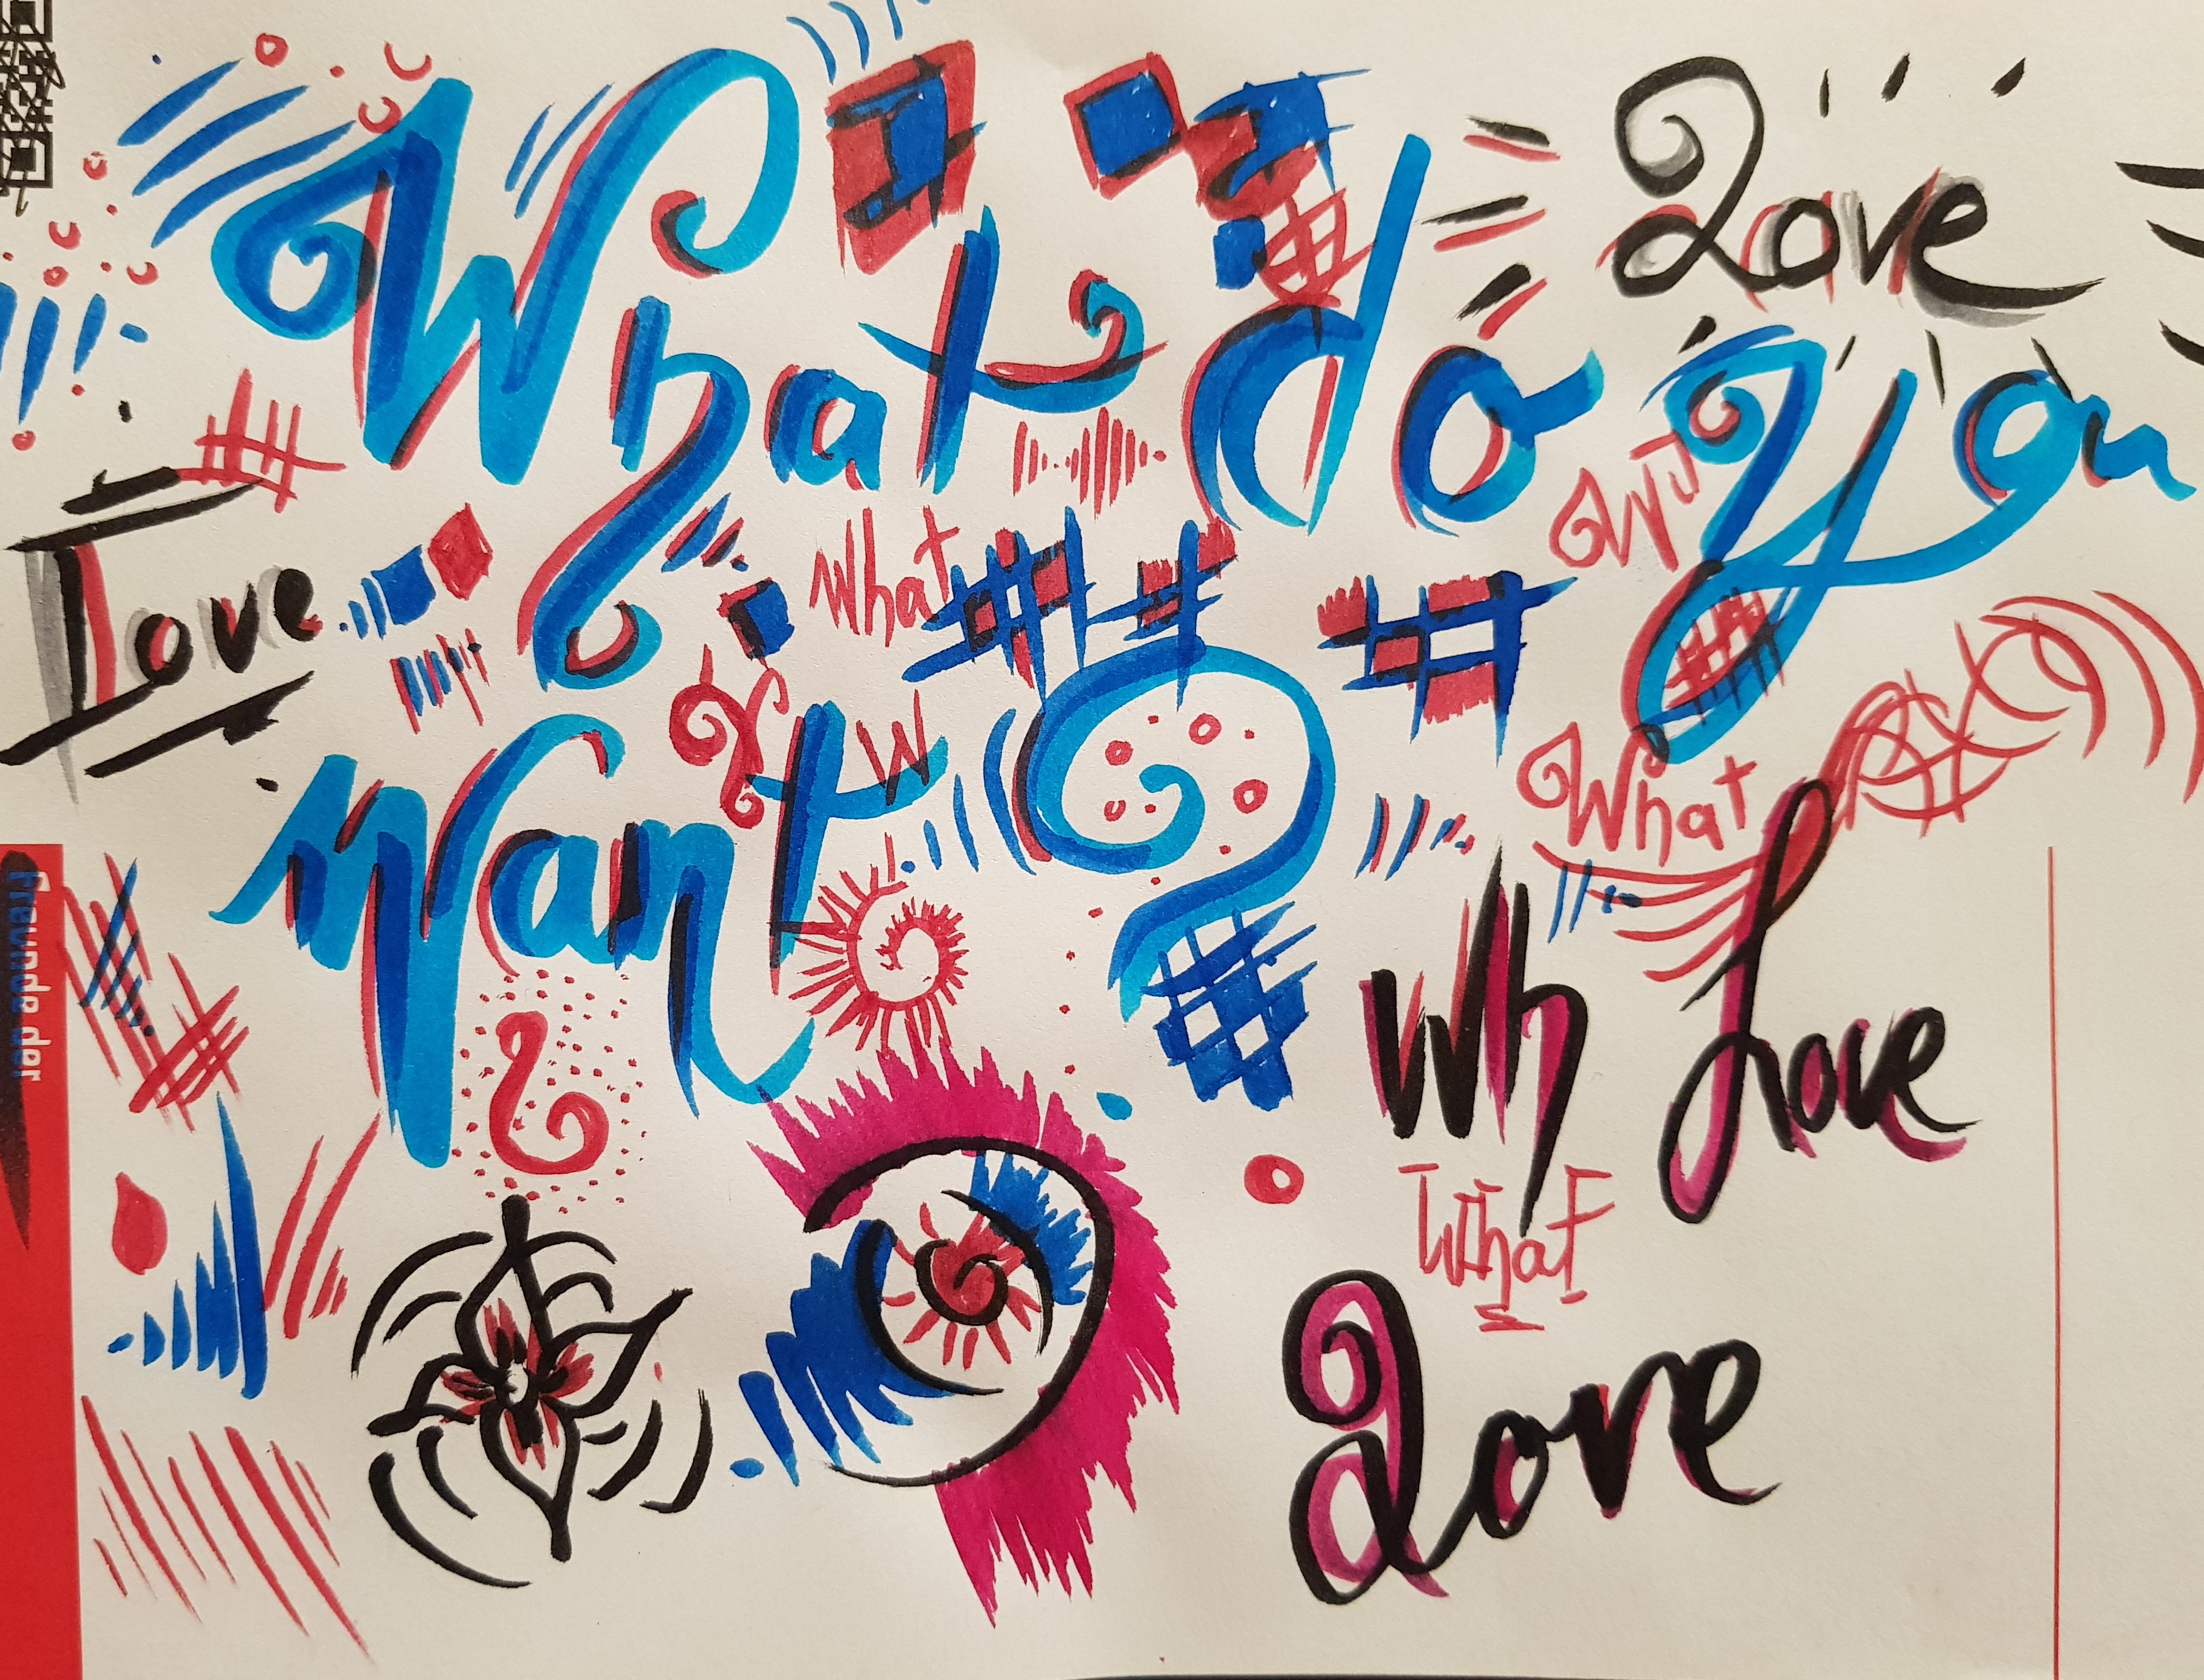 Love
What do you
Wi
Love
What
W
Want ?
What
Wh Love
What
Love
freunde der